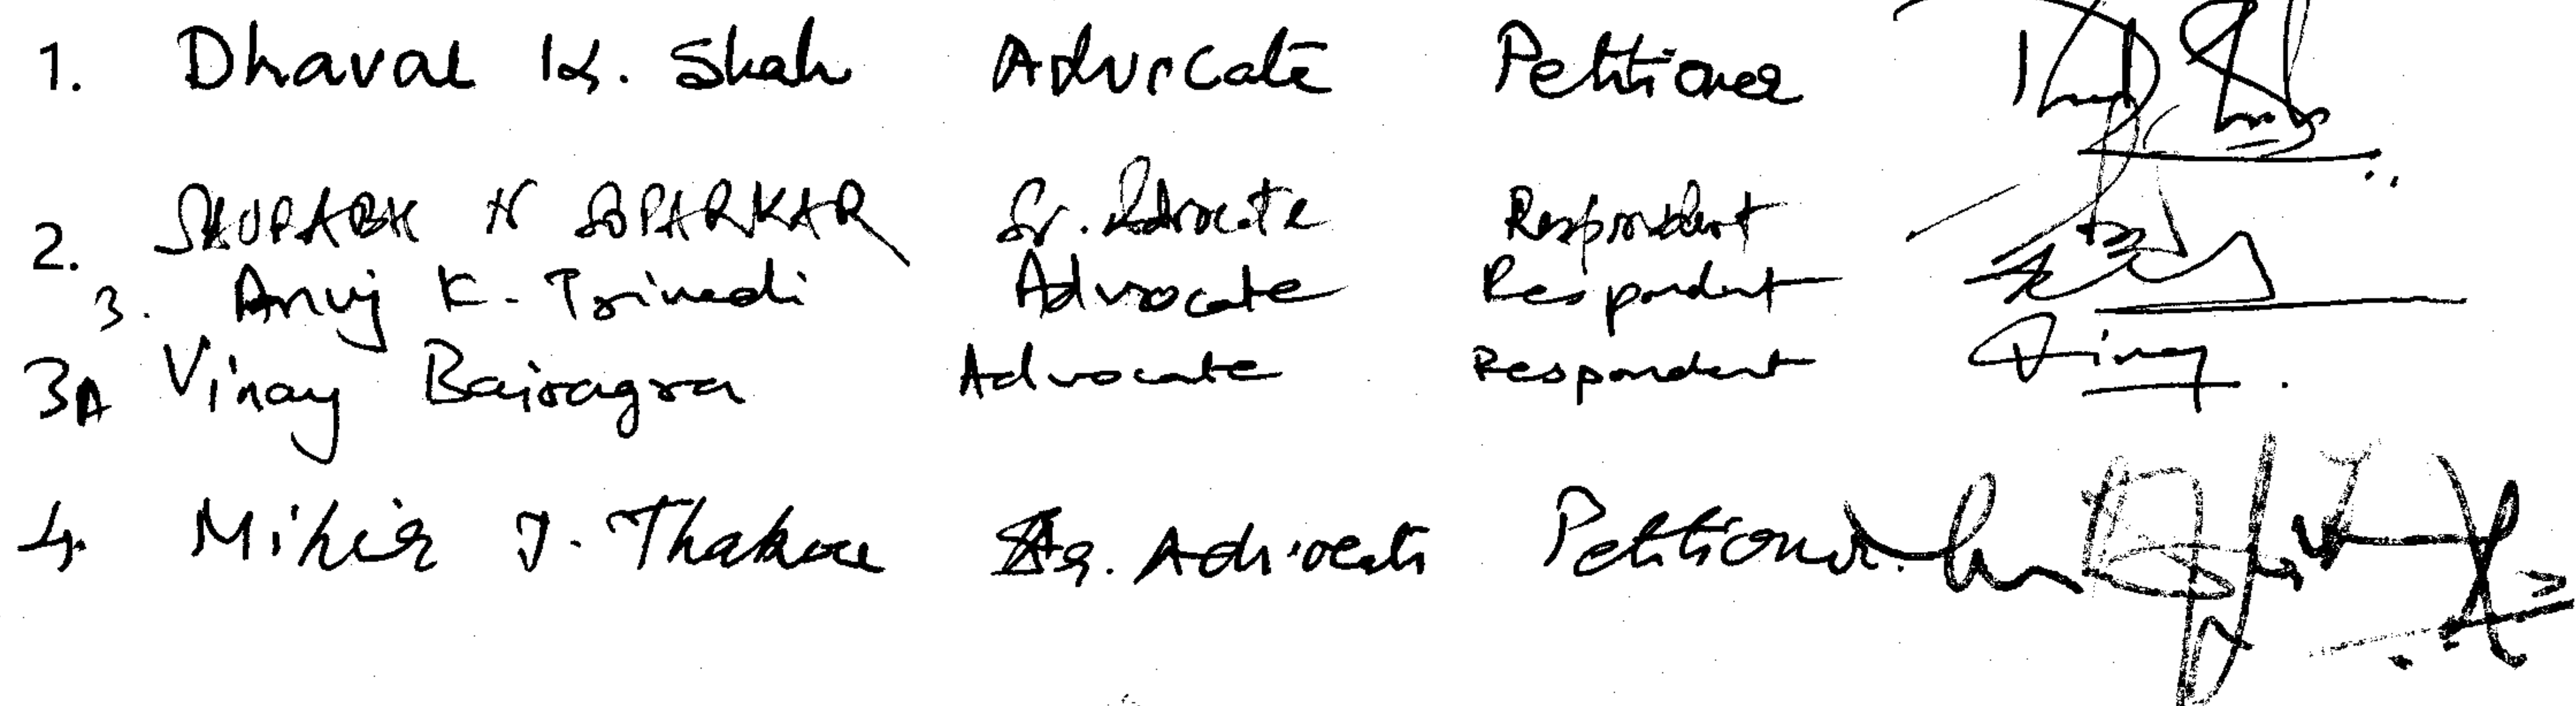 1. Dhaval K. Shah Advocate Petitioner
2. SAURABH N SOPARKAR Sr. Advocate Respondent
3. Anuj K. Trivedi Advocate Respondent
3A Vinay Bairagra Advocate Respondent Vinay
4. Mihir J. Thakore Sr. Advocate Petitioner.